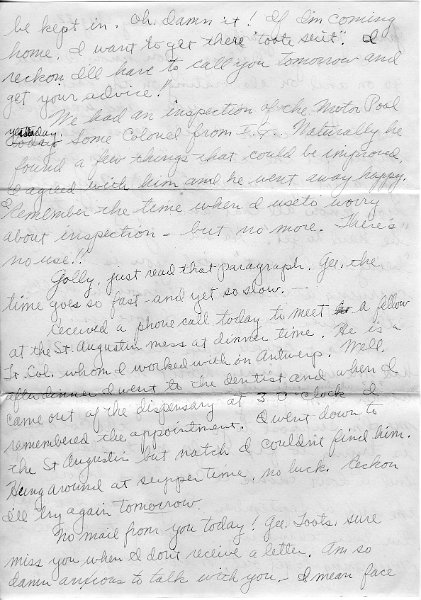 be kept in. Oh, damn it! If I'm coming
home, I want to get there "toote suit". I
reckon I'll have to call you tomorrow and
get your advice!!
We had an inspection of the Motor Pool
yesterday. Some Colonel from Naturally he
found a few things that could be improved.
I agreed with him and he went away happy.
Remember the time when I useto worry
about inspection - but no more. There's
no use!!
Golly, just read that paragraph. Gee, the
time goes so fast - and yet so slow. -
Received a phone call today to meet a fellow
at the St. Augustin mess at dinner time. He is a
Lt. Col. whom I worked with on Antwerp. Well,
after dinner I went to the dentist and when I
came out of the dispensary at 3 O'clock I
remembered the appointment. I went down to
the St Augustin but natch I couldn't find him.
Hung around at supper time, no luck. Reckon
I'll try again tomorrow.
No mail from you today! Gee, Toots, sure
miss you when I don't receive a letter. Am so
damn anxious to talk with you - I mean face